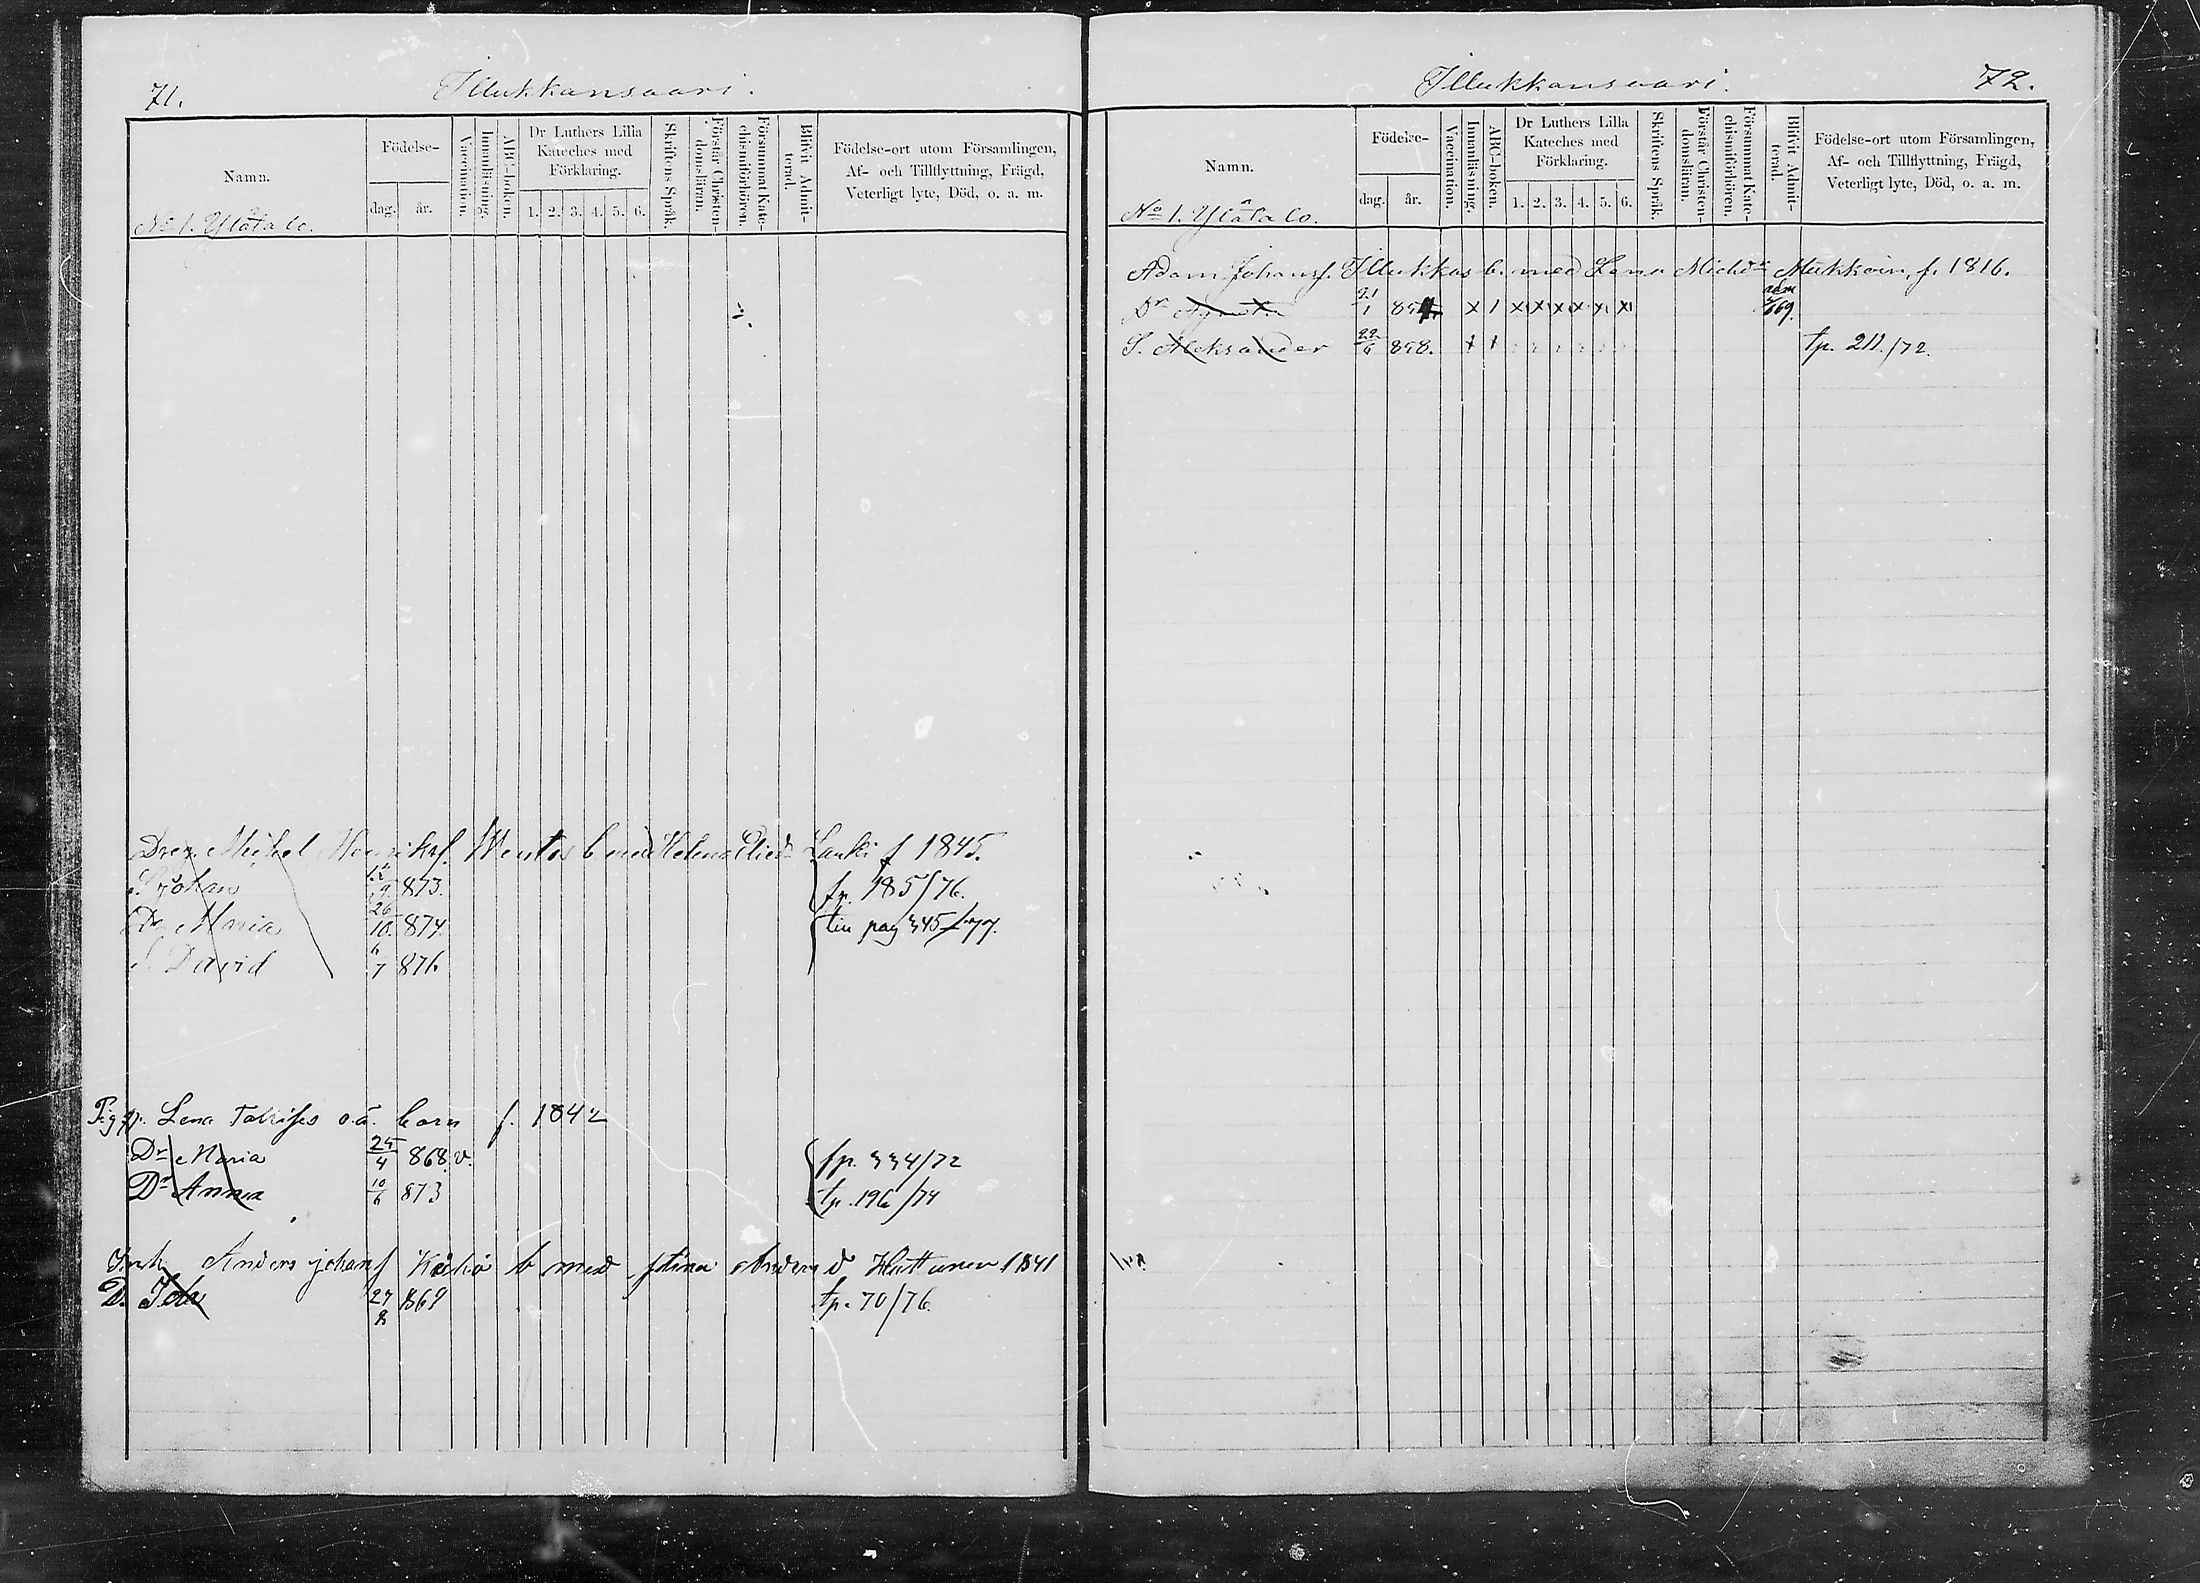 71.
Illukkansaari.
Namn.
Födelse-
dag. år.
Vaccination.
Innanläsning.
ABC-boken.
Dr Luthers Lilla Kateches med Förklaring.
1. 2. 3. 4. 5. 6.
Skriftens Språk.
Förstår Christendomsläran.
Försummat Katechismiförhören.
Blifvit Admitterad.
Födelse-ort utom Församlingen,
Af- och Tillflyttning, Frägd,
Veterligt lyte, Död, o. a. m.
No 1. Ylåtalo.
Michel b med Helena f 1845.
S Johan 873. fp. 185/76.
Dr Maria 26/10 874. till pag 345/77.
S. David 6/7 876
Lena o.ä. barn f. 1842
Dr Maria 25/4 868. v. fp. 334/72
Dr Anna 10/6 873 tp. 196/74
Inh Anders johansf b med stina Huttunen f 1841
D. Ida 27/8 869 tp. 70/76.
Illukkansaari.
72.
Namn.
Födelse-
dag. år.
Vaccination.
Innanläsning.
ABC-boken.
Dr Luthers Lilla Kateches med Förklaring.
1. 2. 3. 4. 5. 6.
Skriftens Språk.
Förstår Christendomsläran.
Försummat Katechismiförhören.
Blifvit Admitterad.
Födelse-ort utom Församlingen,
Af- och Tillflyttning, Frägd,
Veterligt lyte, Död, o. a. m.
No 1. Ylåtalo.
Adam Johansf. Illukkas b. med Lena Michd f. 1816.
Dr 21/1 x 1 x x x x x x 69.
S. Aleksander 22/6 858. tp. 211./72.